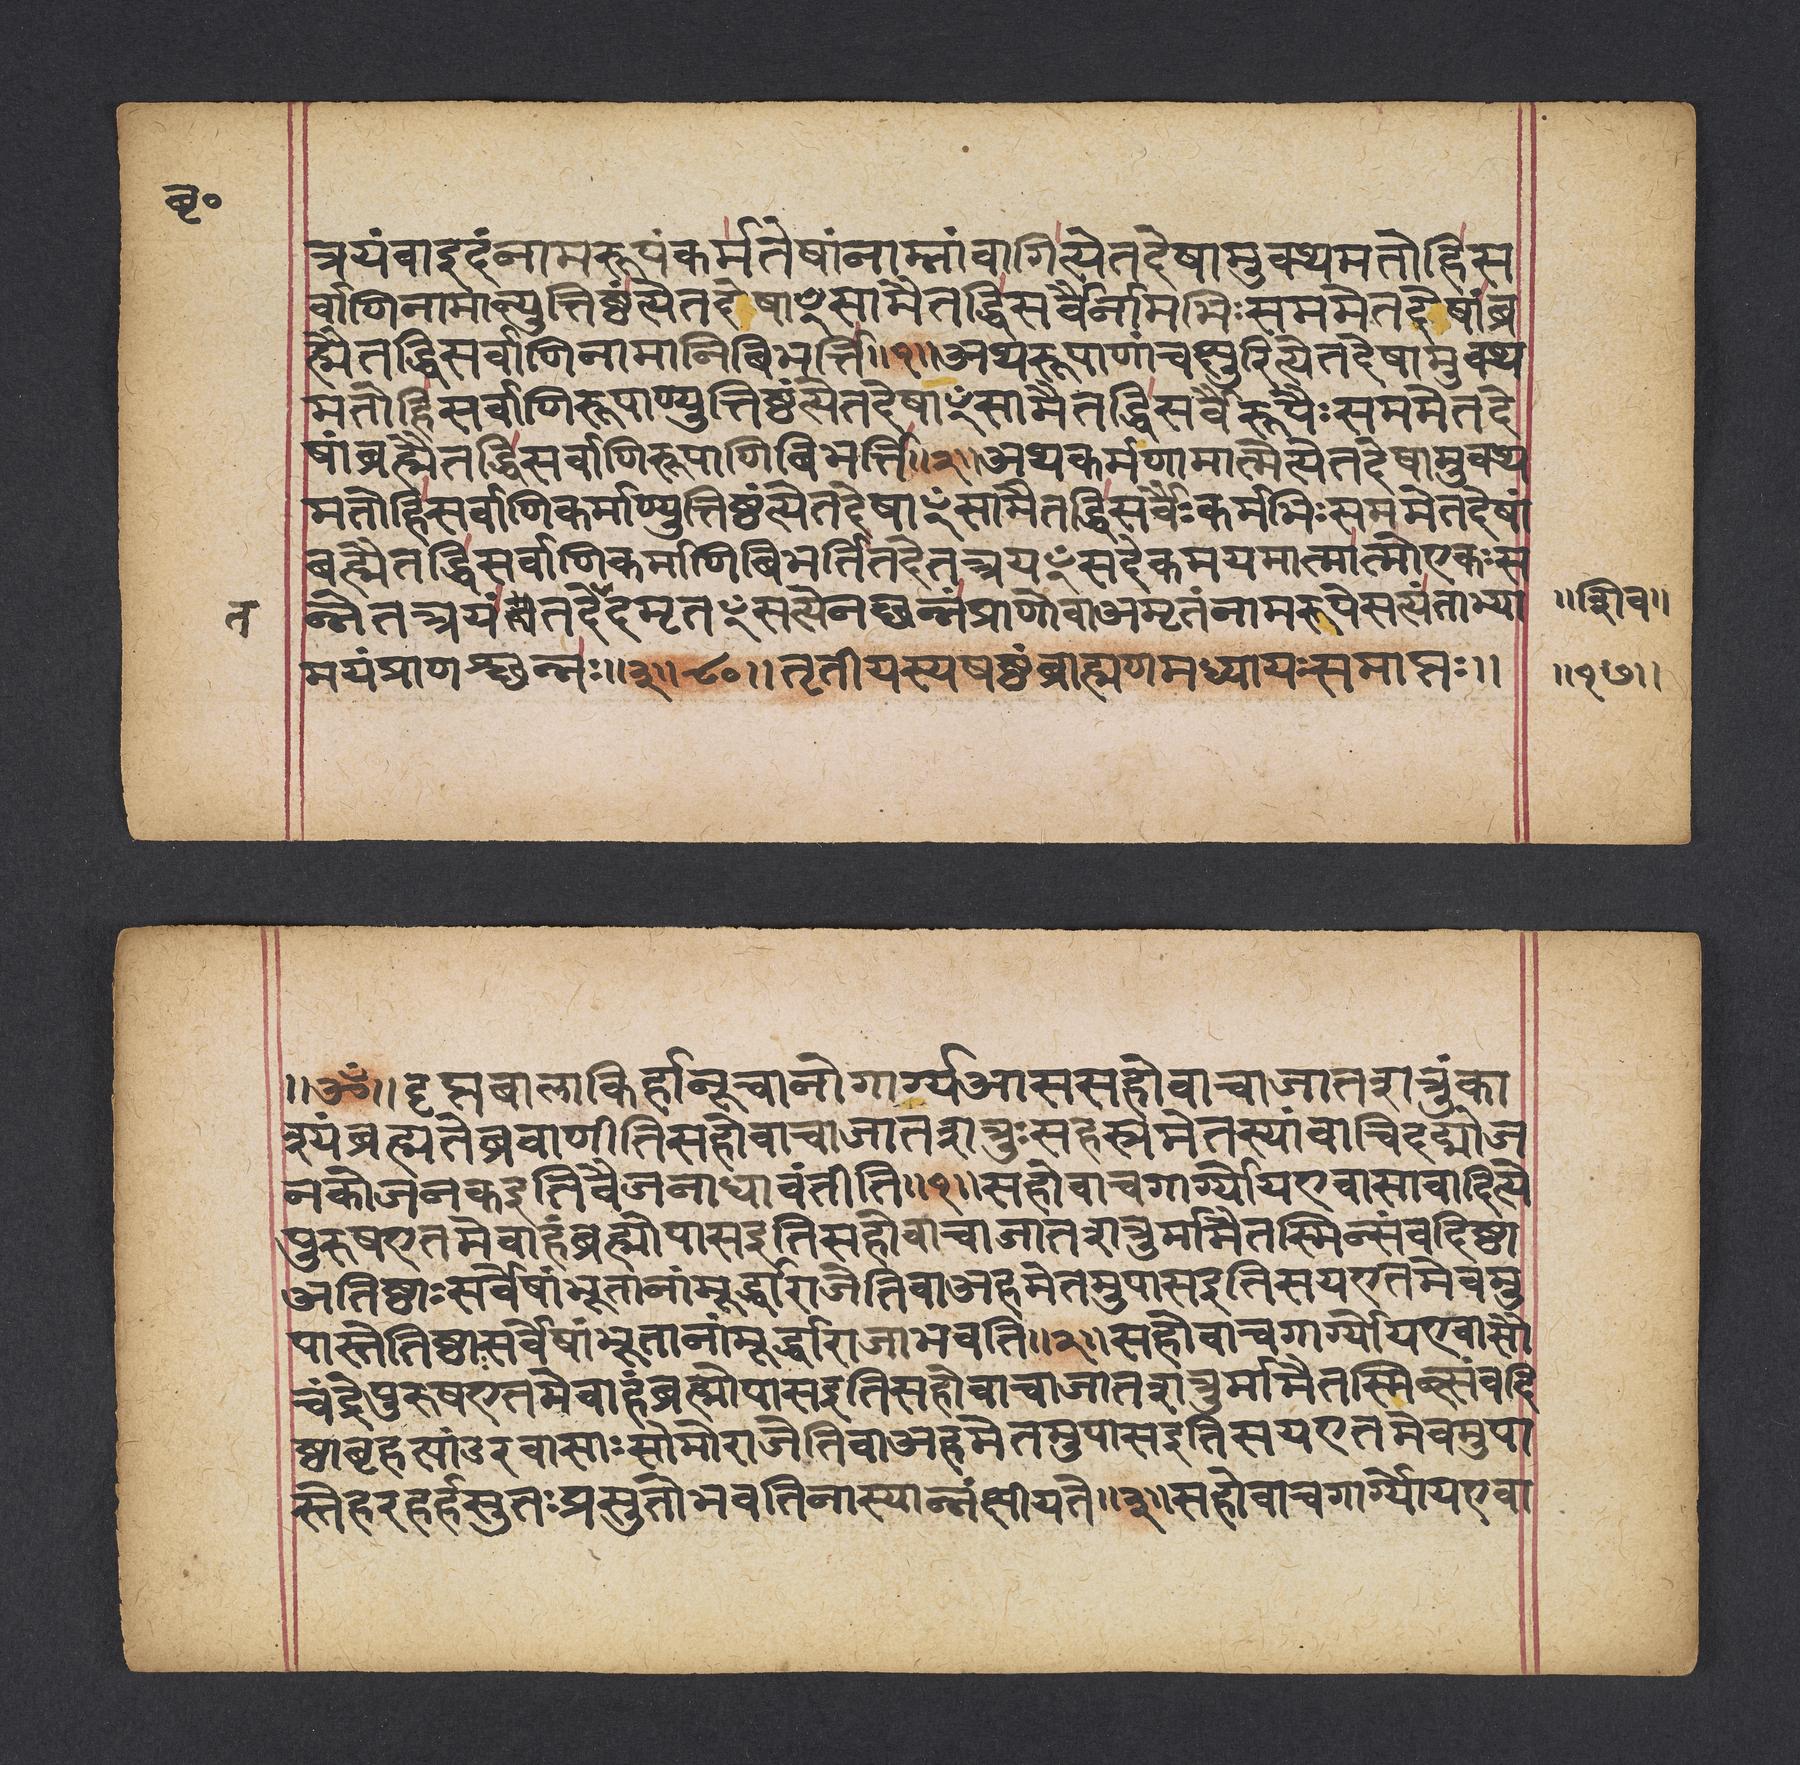 बृ॰
त्रयंवाइदंनामरूपंकर्मतेषांनाम्नांवागित्येतदेषामुक्थमतोहिस
र्वाणिनामान्युत्तिष्ठंत्येतदेषाꣳसामैतद्धिसर्वैर्नामभिःसममेतदेषांब्र
ह्मैतद्धिसर्वाणिनामानिबिभर्त्ति॥१॥अथरूपाणांचक्षुरित्येतदेषामुक्थ
मतोहिसर्वाणिरूपाण्युत्तिष्ठंत्येतदेषाꣳसामैतद्धिसर्वैरूपैःसममेतदे
षांब्रह्मैतद्धिसर्वाणिरूपाणिबिभर्त्ति॥२॥अथकर्मणामात्मेत्येतदेषामुक्थ
मतोहिसर्वाणिकर्माण्युत्तिष्ठंत्येतदेषाꣳसामैतद्धिसर्वैःकर्मभिःसममेतदेषां
बह्मैतद्धिसर्वाणिकर्माणिबिभर्तितदेतत्त्रयꣳसदेकमयमात्मात्मोएकःस
त
न्नेतत्त्रयंतदेतदमृतꣳसत्येनछन्नंप्राणोवाअमृतंनामरूपेसत्यंताभ्या
॥शिव॥
मयंप्राणश्छन्नः॥३॥८०॥तृतीयस्यषष्ठंब्राह्मणमध्यायःसमाप्तः॥
॥१७॥
॥ॐ॥दृप्तबालाकिर्हानूचानोगार्ग्यआससहोवाचाजातशत्रुंका
श्यंब्रह्मतेब्रवाणीतिसहोवाचाजातशत्रुःसहस्रमेतस्यांवाचिदद्मोज
नकोजनकइतिवैजनाधावंतीति॥१॥सहोवाचगार्ग्योयएवासावादित्ये
पुरुषएतमेवाहंब्रह्मोपासइतिसहोवाचाजातशत्रुर्मामैतस्मिन्संवदिष्ठा
अतिष्ठाःसर्वेषांभूतानांमूर्द्धाराजेतिवाअहमेतमुपासइतिसयएतमेवमु
पास्तेतिष्ठासर्वेषांभूतानांमूर्द्धाराजाभवति॥२॥सहोवाचगार्ग्योयएवासौ
चंद्रेपुरुषएतमेवाहंब्रह्मोपासइतिसहोवाचाजातशत्रुर्मामैतस्मिन्संवदि
ष्ठाबृहत्पांडरवासाःसोमोराजेतिवाअहमेतमुपासइतिसयएतमेवमुपा
स्तेहरहर्हसुतःप्रसुतोभवतिनास्यान्नंक्षीयते॥३॥सहोवाचगार्ग्योयएवा